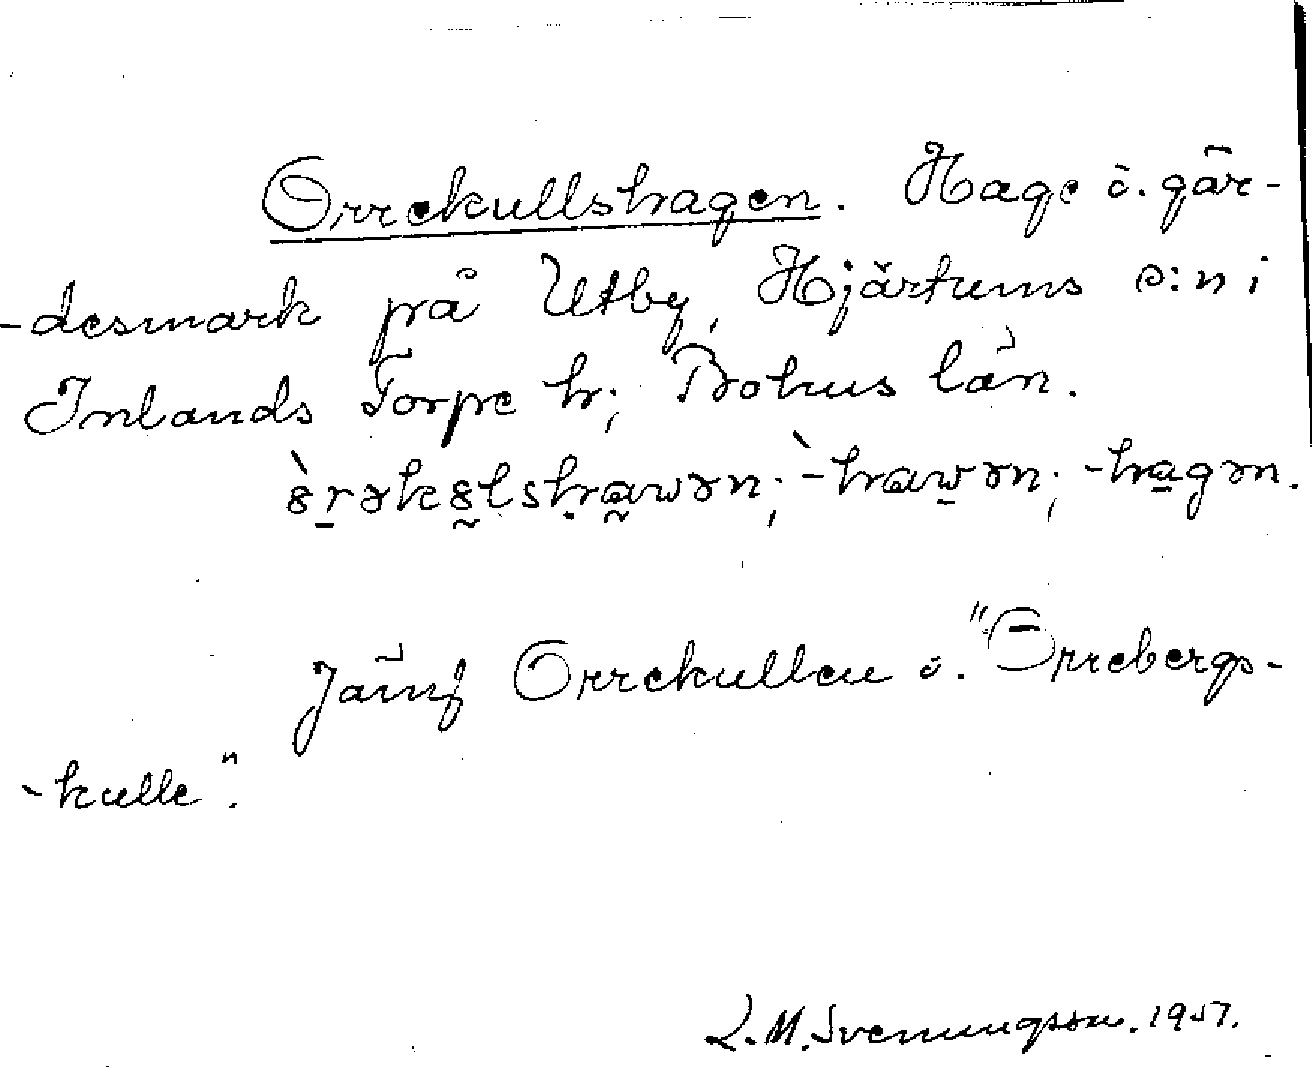 Orrekullshagen. Hage ö. gär-
-desmark på Utby, Hjärtums s:n i
Inlands Torpe hr; Bohus län.
-hawən; -hagən.
Jämf Orrekullen ö. "Orrebergs-
-kulle".
L. M. Svenungsson. 1957.